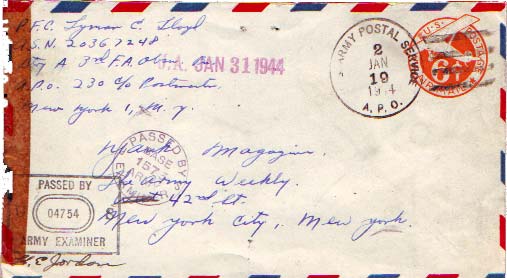 P.F.C. Lyman C. Lloyd
A.S.N. 20367248
Bty A 3rd F.A. Obsn. Bn.
A.P.O. 230 c/o Postmaster
New York 1, N.Y.
JAN 31 1944
ARMY POSTAL SERVICE
2
JAN
19
A.P.O.
U.S. POSTAGE
6¢
AIR MAIL
PASSED BY
BASE
ARMY
EXAMINER
Yank Magazine
The Army Weekly
West 42nd St.
New York City, New York.
PASSED BY
04754
ARMY EXAMINER
Jordan